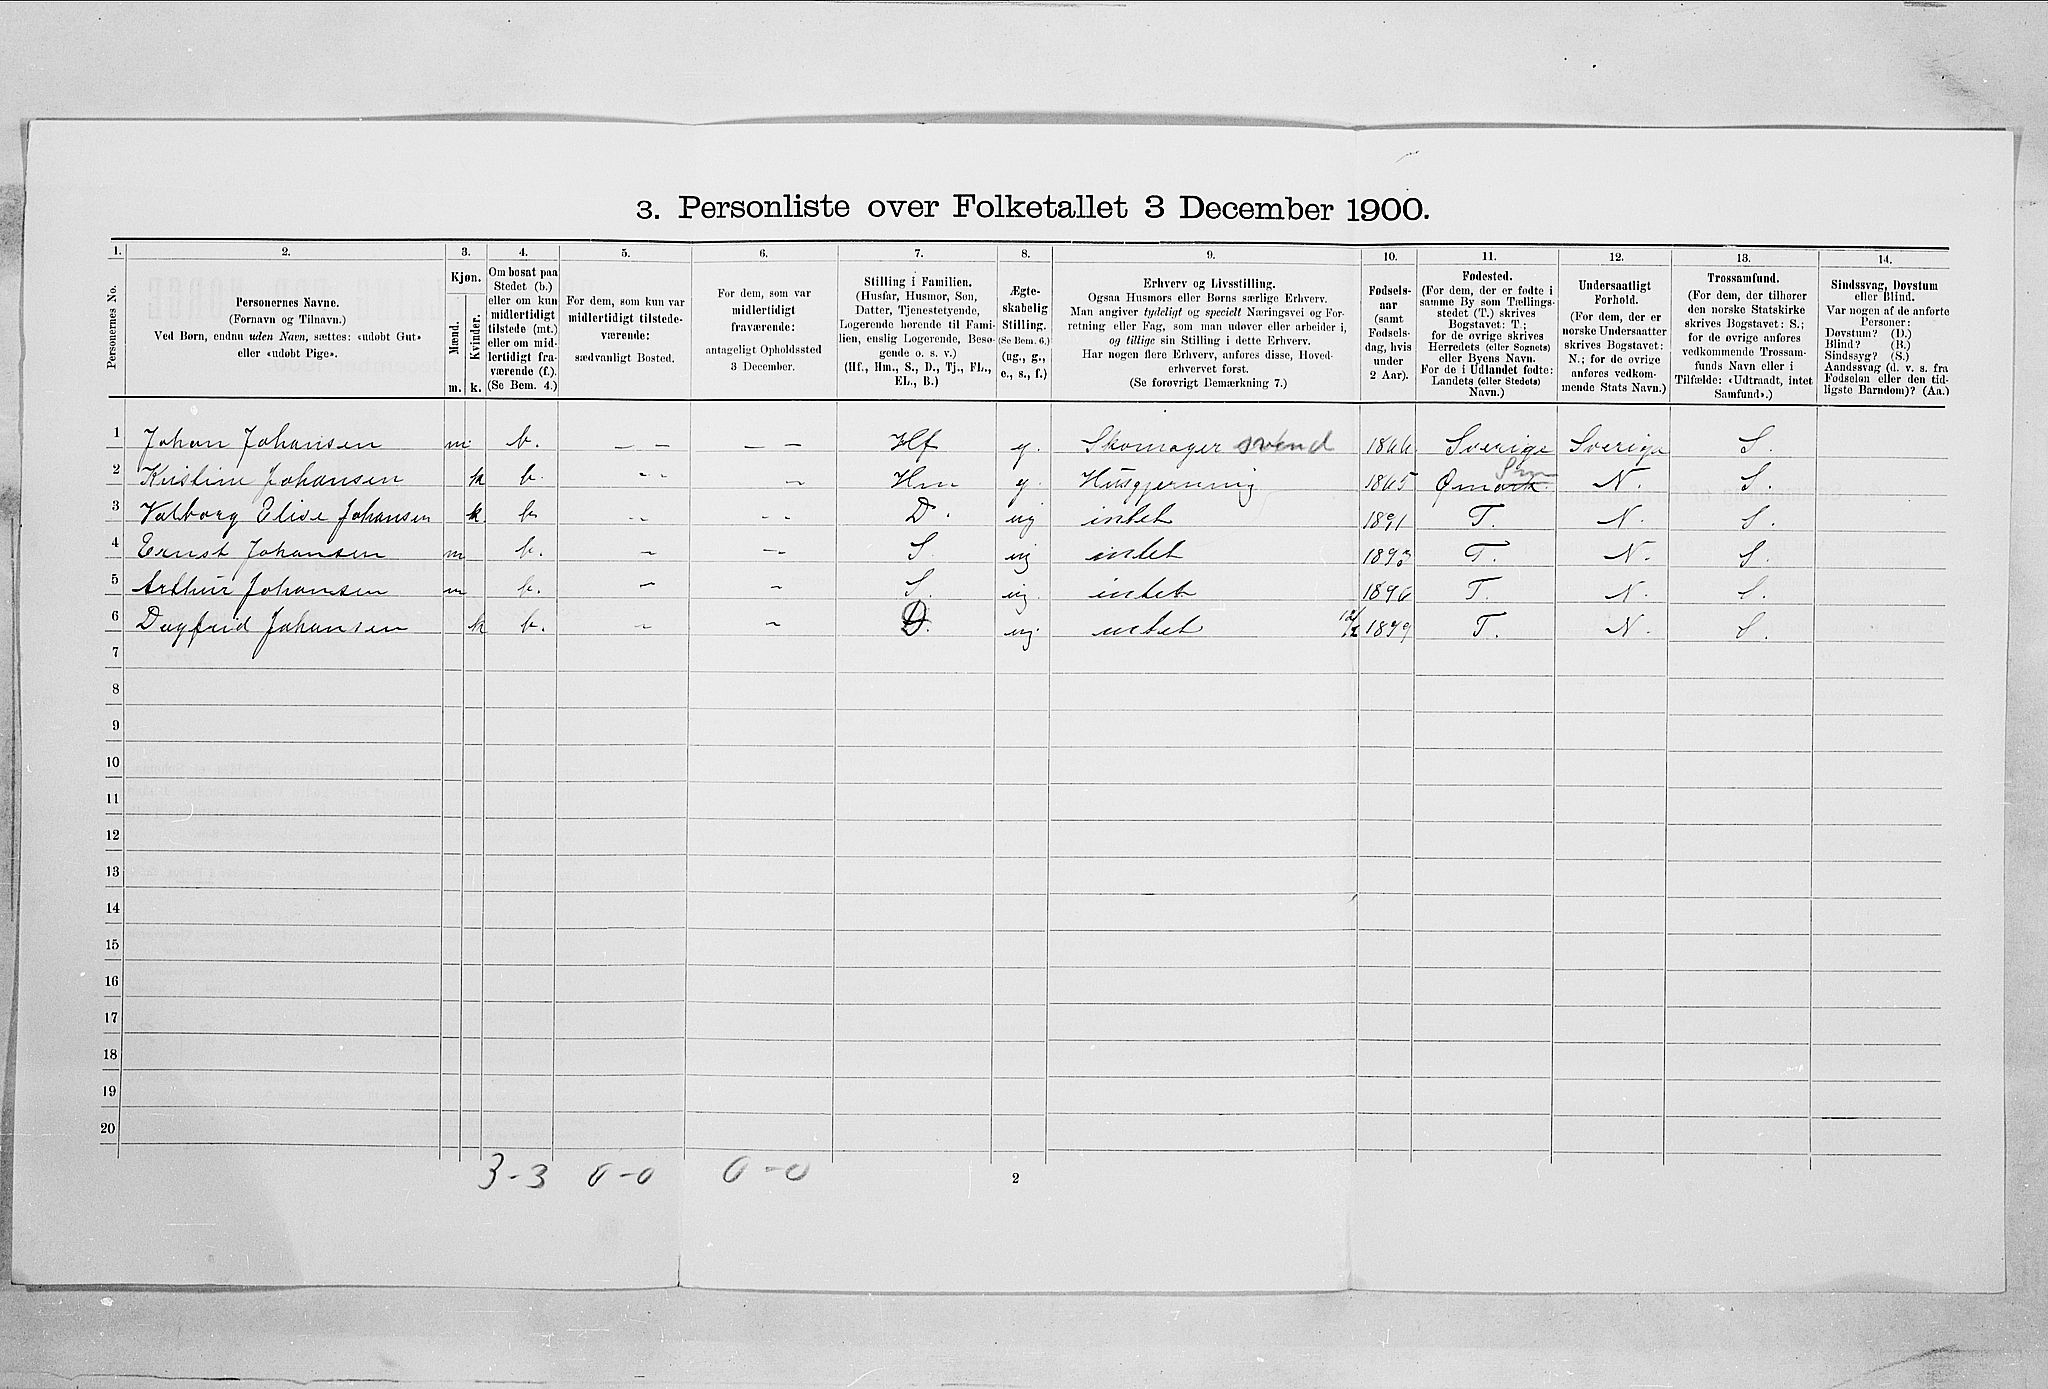 3. Personliste over Folketallet 3 December 1900.
1. 2. 3. 4. 5. 6. 7. 8. 9. 10. 11. 12. 13. 14.
Personernes No.
Personernes Navne.
(Fornavn og Tilnavn.)
Ved Børn, endnu uden Navn, sættes: «udøbt Gut»
eller «udøbt Pige».
Kjøn.
Mænd. Kvinder.
m. k.
Om bosat paa
Stedet (b.)
eller om kun
midlertidigt
tilstede (mt.)
eller om mid-
lertidigt fra-
værende (f.).
(Se Bem. 4.)
For dem, som kun var
midlertidigt tilstede-
værende:
sædvanligt Bosted.
For dem, som var
midlertidigt
fraværende:
antageligt Opholdssted
3 December.
Stilling i Familien.
(Husfar, Husmor, Søn,
Datter, Tjenestetyende,
Logerende hørende til Fami-
lien, enslig Logerende, Besø-
gende o. s. v.)
(Hf., Hm., S., D., Tj., FL.,
EL., B.)
Ægte-
skabelig
Stilling.
(Se Bem. 6.)
(ug., g.,
e., s., f.)
Erhverv og Livsstilling.
Ogsaa Husmors eller Børns særlige Erhverv.
Man angiver tydeligt og specielt Næringsvei og For-
retning eller Fag, som man udøver eller arbeider i,
og tillige sin Stilling i dette Erhverv.
Har nogen flere Erhverv, anføres disse, Hoved-
erhvervet først.
(Se forøvrigt Bemærkning 7.)
Fødsels-
aar
(samt
Fødsels-
dag, hvis
under
2 Aar).
Fødested.
(For dem, der er fødte i
samme By som Tællings-
stedet (T.) skrives
Bogstavet: T.;
for de øvrige skrives
Herredets (eller Sognets)
eller Byens Navn.
For de i Udlandet fødte:
Landets (eller Stedets)
Navn.)
Undersaatligt
Forhold.
(For dem, der er
norske Undersaatter
skrives Bogstavet:
N.; for de øvrige
anføres vedkom-
mende Stats Navn.)
Trossamfund.
(For dem, der tilhører
den norske Statskirke
skrives Bogstavet: S.;
for de øvrige anføres
vedkommende Trossam-
funds Navn eller i
Tilfælde: «Udtraadt, intet
Samfund».)
Sindssvag, Døvstum
eller Blind.
Var nogen af de anførte
Personer:
Døvstum? (D.)
Blind? (B.)
Sindssyg? (S.)
Aandssvag (d. v. s. fra
Fødselen eller den tid-
ligste Barndom)? (Aa.)
1 Johan Johansen m. b. – – – – Hf g. Skomager svend 1866 Sverige Sverige S.
2 Kristine Johansen k b. – – – Hm g. Husgjerning 1865 Ømark. N. S.
3 Valborg Elise Johansen k. b – – – – D. ug intet 1891 T. N. S.
4 Ernst Johansen m b. – – – S. ug intet 1893 T. N. S.
5 Arthur Johansen m b. – – S. ug. intet 1896 T. N. S.
6 Dagfrid Johansen k b. – – D. ug. intet 12/12 1899 T. N. S.
7
8
9
10
11
12
13
14
15
16
17
18
19
20
3-3 0-0 0-0
2